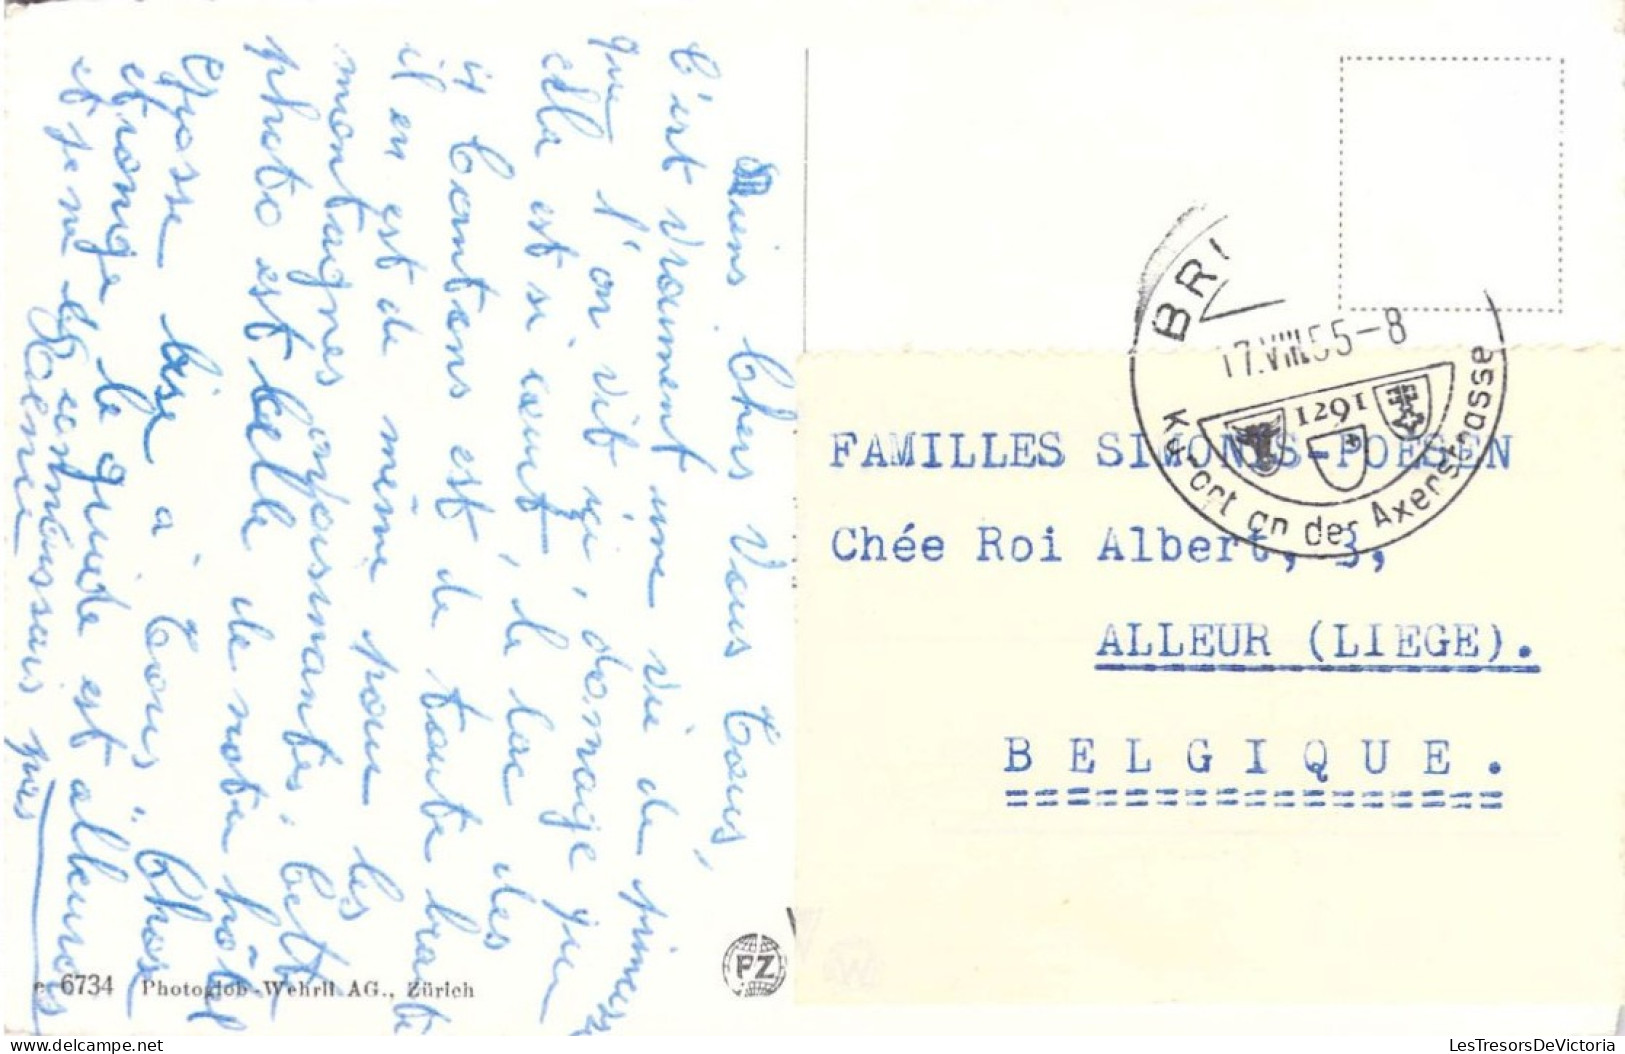 Biens Chers Vous Tous,
C'est vraiment une vie de princes
que l'on vit ici, domage que
cella est si court, le lac des
4 Cantons est de toute beauté
il en est de même pour les
montagnes environnantes; cette
photo est celle de notre hôtel
grosse bise à tous. Chose
étrange le guide est alleurois
et je ne le connaissais pas
e 6734 Photoglob-Wehrli AG., Zürich
PZ
BRU
17.VIII.55-8
1291
Kurort an der Axenstrasse
FAMILLES SIMONIS-POESEN
Chée Roi Albert, 3,
ALLEUR (LIEGE).
BELGIQUE.
LesTresorsDeVictoria